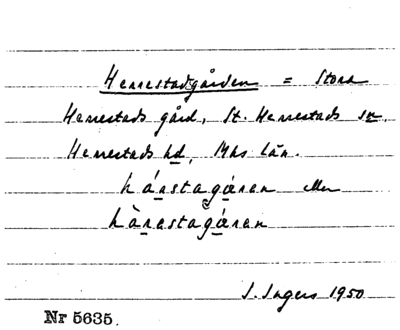 Herrestadgården = Stora
Herrestads gård, St. Herrestads sn.
Herrestads hd, Mhs län.
hárstagáren eller
hàrestagáren
I. Ingers 1950
Nr 5635.